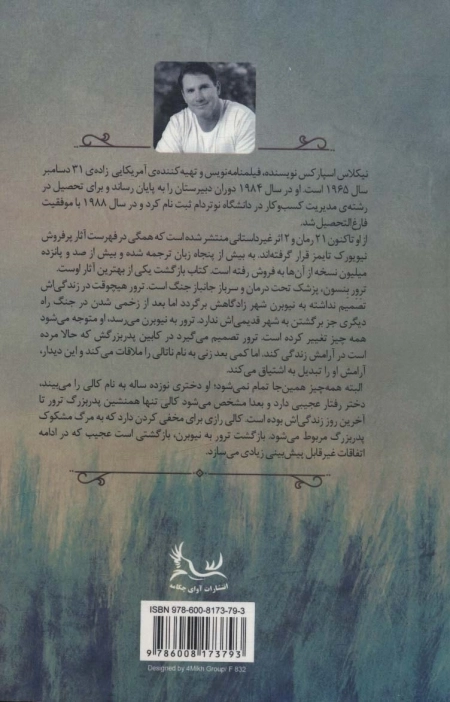 نیکلاس اسپارکس نویسنده، فیلمنامه‌نویس و تهیه‌کننده‌ی آمریکایی زاده‌ی ۳۱ دسامبر
سال ۱۹۶۵ است او در سال ۱۹۸۴ دوران دبیرستان را به پایان رساند و برای تحصیل در
رشته‌ی مدیریت کسب‌وکار در دانشگاه نوتردام ثبت نام کرد و در سال ۱۹۸۸ با موفقیت
فارغ‌التحصیل شد.
از او تاکنون ۲۱ رمان و ۲ اثر غیرداستانی منتشر شده است که همگی در فهرست آثار پرفروش
نیویورک تایمز قرار گرفته‌اند. به بیش از پنجاه زبان ترجمه شده و بیش از صد و پانزده
میلیون نسخه از آن‌ها به فروش رفته است. کتاب بازگشت یکی از بهترین آثار اوست.
ترور بنسون، پزشک تحت درمان و سرباز جانباز جنگ است. ترور هیچوقت در زندگی‌اش
تصمیم نداشته به نیوبرن شهر زادگاهش برگردد اما بعد از زخمی شدن در جنگ راه
دیگری جز برگشتن به شهر قدیمی‌اش ندارد. ترور به نیوبرن می‌رسد، او متوجه می‌شود
همه چیز تغییر کرده است. ترور تصمیم می‌گیرد در کابین پدربزرگش که حالا مرده
است در آرامش زندگی کند. اما کمی بعد زنی به نام ناتالی را ملاقات می‌کند و این دیدار،
آرامش او را تبدیل به اشتیاق می‌کند.
البته همه‌چیز همین‌جا تمام نمی‌شود؛ او دختری نوزده ساله به نام کالی را می‌بیند،
دختر رفتار عجیبی دارد و بعدا مشخص می‌شود کالی تنها همنشین پدربزرگ ترور تا
آخرین روز زندگی‌اش بوده است. کالی رازی برای مخفی کردن دارد که به مرگ مشکوک
پدربزرگ مربوط می‌شود. بازگشت ترور به نیوبرن، بازگشتی است عجیب که در ادامه
اتفاقات غیرقابل پیش‌بینی زیادی می‌سازد.
انتشارات آوای چکامه
ISBN 978-600-8173-79-3
9 786008 173793
Designed by 4Mikh Group: F 832